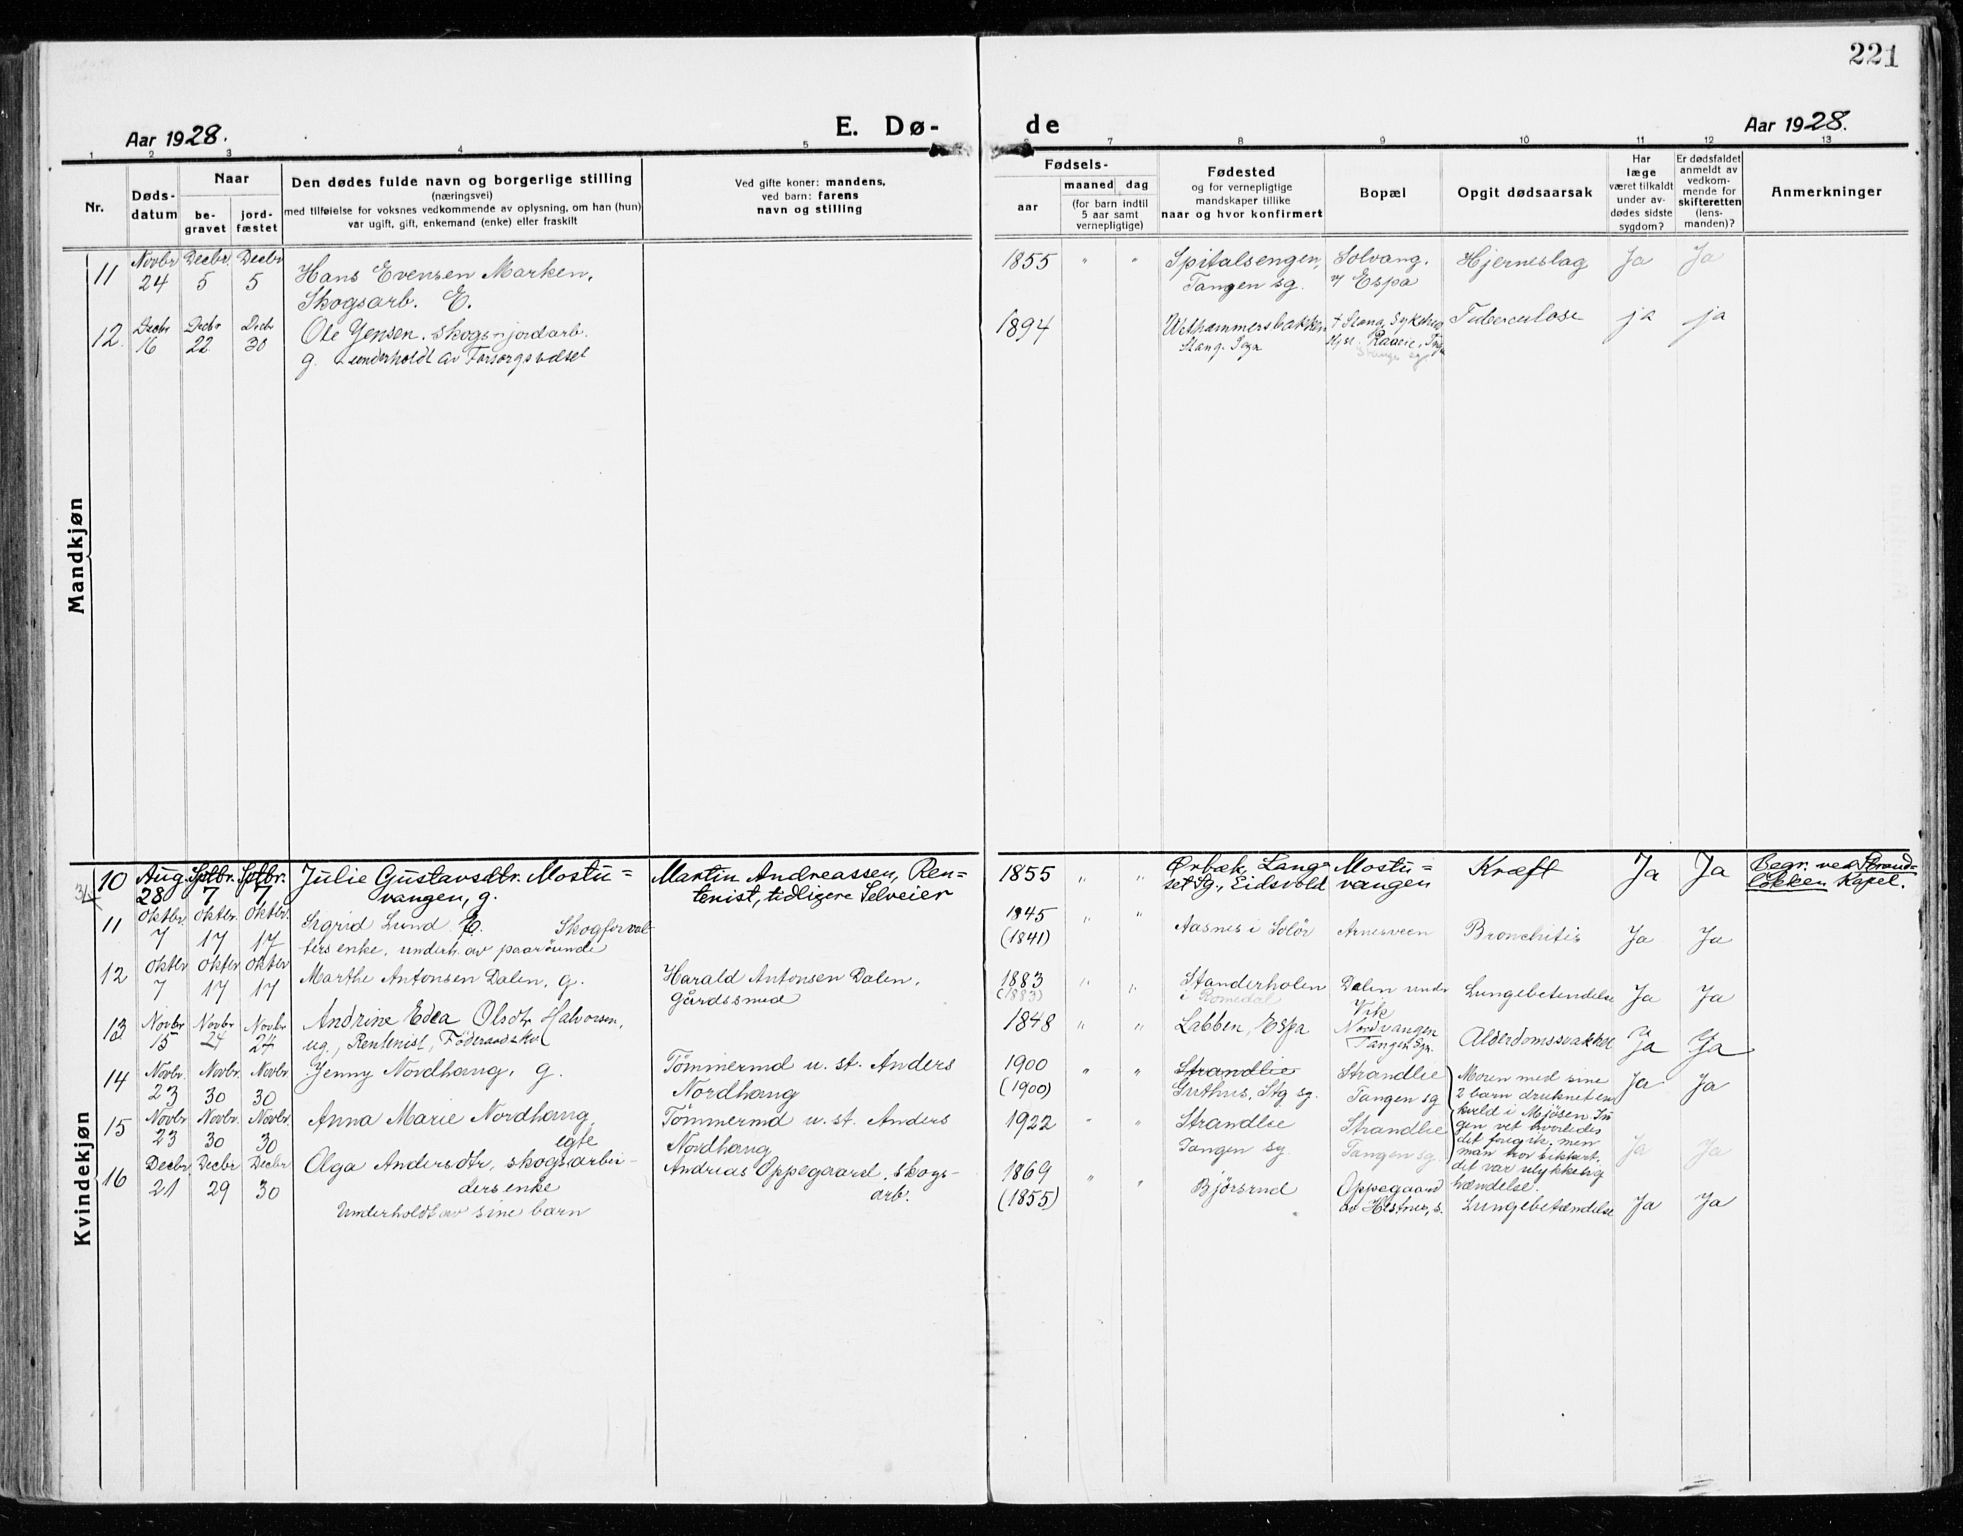 221
Aar 1928.
E. Dø-
de
Aar 1928.
1 2 3 4 5 6 7 8 9 10 11 12 13
Nr.
Døds-
datum
Naar
be-
gravet
jord-
fæstet
Den dødes fulde navn og borgerlige stilling
(næringsvei)
med tilføielse for voksnes vedkommende av oplysning, om han (hun)
var ugift, gift, enkemand (enke) eller fraskilt
Ved gifte koner: mandens,
ved barn: farens
navn og stilling
Fødsels-
aar
maaned dag
(for barn indtil
5 aar samt
vernepligtige)
Fødested
og for vernepligtige
mandskaper tillike
naar og hvor konfirmert
Bopæl
Opgit dødsaarsak
Har
læge
været tilkaldt
under av-
dødes sidste
sygdom?
Er dødsfaldet
anmeldt av
vedkom-
mende for
skifteretten
(lens-
manden)?
Anmerkninger
Mandkjøn
11 Novbr 24 Decbr. 5 Decbr 5
Hans Evensen Marken,
Skogsarb. E.
1855 " "
Spitalsengen,
Tangen sg.
Solvang,
v/ Espa
Hjerneslag Ja Ja
12. Decbr 16 Decbr 22 Decbr 30
Ole Jensen. skogs- jordarb.
g. underholdt av Forsorgsvæset
1894
Stang Sogn
† Stang Sykehus
Tuberculose ja ja
Kvindekjøn
10 Aug 28 Sptbr. 7 Sptbr. 7
Julie Gustavsdtr. Mostu=
vangen, g.
Martin Andreassen, Ren=
tenist, tidligere Selveier
1855 " "
Ørbæk, Lang=
set Sg., Eidsvold
Mostu=
vangen
Kræft Ja Ja
Begr. ved Strand-
løkken Kapel.
11 Oktbr 7 Oktbr. 17 Oktbr. 17
Sigrid Lund E. Skogforval
ters enke, underh. av paarørende
1845 " "
(1841)
Aasnes i Solør Arnesveen Bronchitis Ja Ja
12 Oktbr 7 Oktbr 17 Oktbr 17
Marthe Antonsen Dalen, g.
Harald Antonsen Dalen,
gårdssmed
1883 " "
(1883)
Standerholen
i Romedal
Dalen under
Vik
Lungebetendelse Ja Ja
13 Novbr 15 Novbr 24 Novbr 24
Andrine Edea Olsdtr Halvorsen,
ug., Rentenist, Föderaadskv.
1848 " "
Labben, Espa
Nordvangen
Tangen Sgn.
Alderdomssvakhet Ja Ja
14 Novbr. 23 Novbr. 30 Novbr 30
Jenny Nordhaug, g.
Tömmermd u. st. Anders
Nordhaug
1900 " "
(1900)
Strandlie
Guthus, Stg sg.
Strandlie
Tangen sg
Moren med sine
2 barn druknet en
kveld i Mjøsen. In
gen vet hvorledes
det foregik, men
man tror sikkert,
det var ulykkelig
hændelse.
Ja Ja
15 Novbr. 23 Novbr. 30 Novbr. 30
Anna Marie Nordhaug,
egte
Tömmermd u. st. Anders
Nordhaug
1922 " "
Strandlie
Tangen sg.
Strandlie
Tangen sg.
Ja Ja
16 Decbr. 21 Decbr 29 Decbr 30
Olga Andersdtr, skogsarbei-
ders enke
Underholdt av sine barn
Andreas Oppegaard, skogs-
arb.
1869 " "
(1855)
Bjørsrud
Oppegaard
av Hestnes, s.
Lungebetændelse Ja Ja